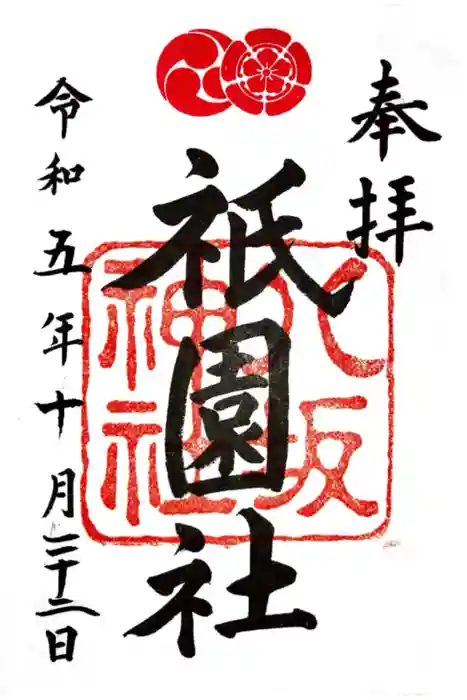 奉拝
祇園社
八坂
神社
令和五年十月二十二日